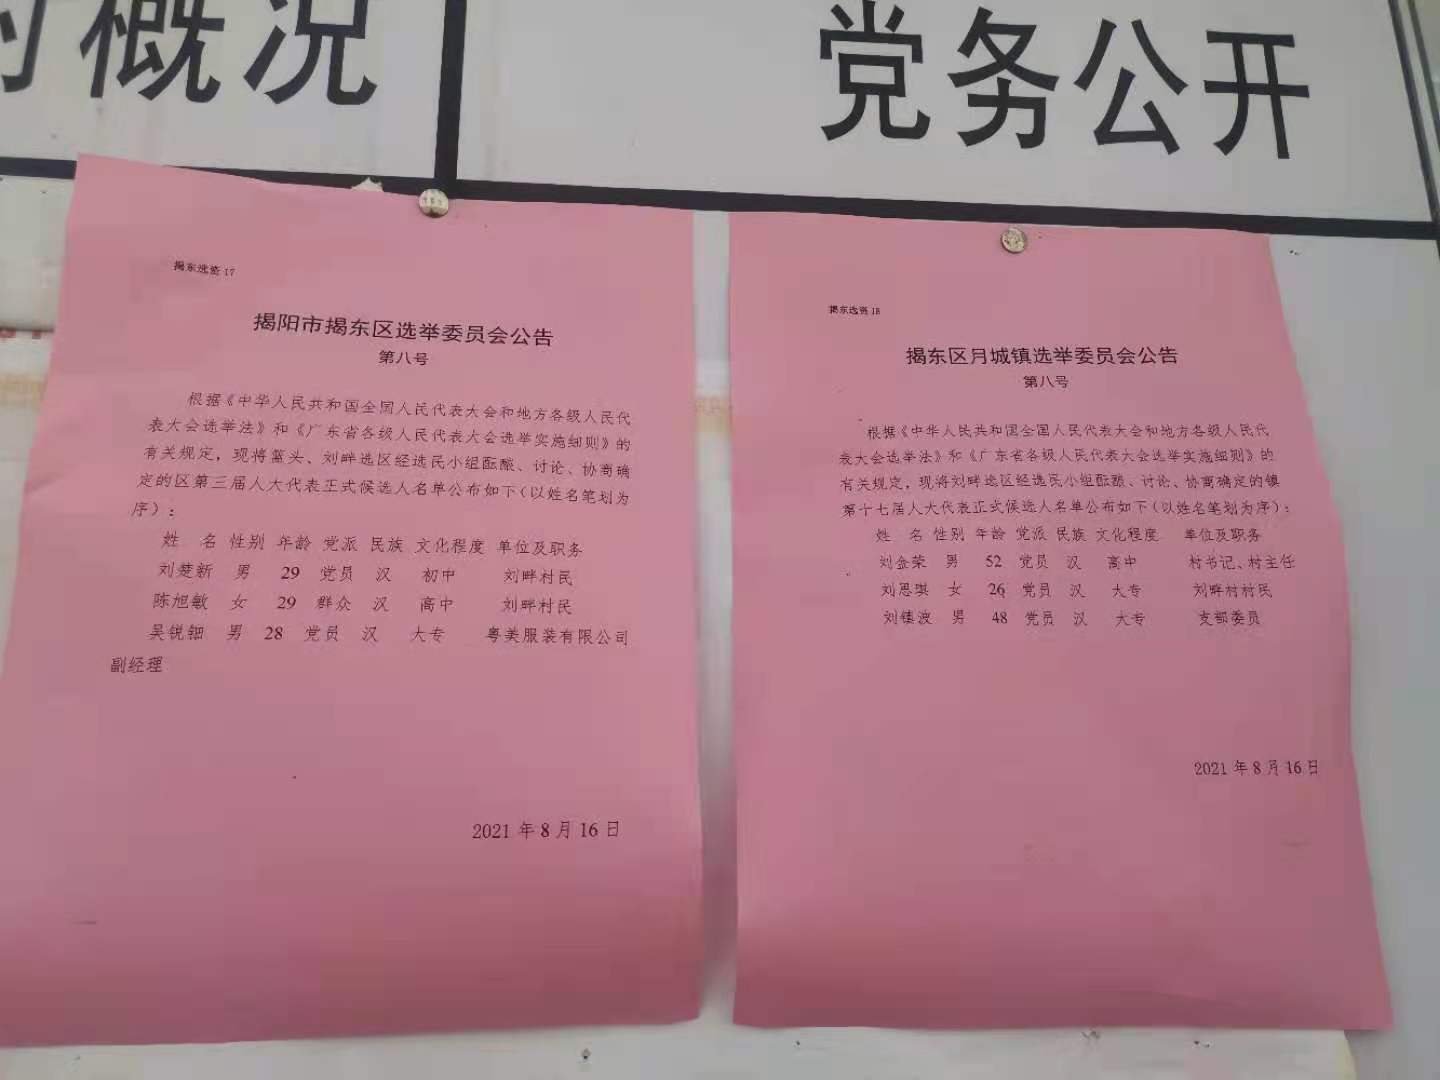 概况
党务公开
揭东选资 17
揭阳市揭东区选举委员会公告
第八号
根据《中华人民共和国全国人民代表大会和地方各级人民代
表大会选举法》和《广东省各级人民代表大会选举实施细则》的
有关规定，现将篮头、刘畔选区经选民小组酝酿、讨论、协商确
定的区第三届人大代表正式候选人名单公布如下（以姓名笔划为
序）：
姓 名 性别 年龄 党派 民族 文化程度 单位及职务
刘楚新 男 29 党员 汉 初中 刘畔村民
陈旭敏 女 29 群众 汉 高中 刘畔村民
吴锐钿 男 28 党员 汉 大专 粤美服装有限公司
副经理
2021 年 8 月 16 日
揭东选资 18
揭东区月城镇选举委员会公告
第八号
根据《中华人民共和国全国人民代表大会和地方各级人民代
表大会选举法》和《广东省各级人民代表大会选举实施细则》的
有关规定，现将刘畔选区经选民小组酝酿、讨论、协商确定的镇
第十七届人大代表正式候选人名单公布如下（以姓名笔划为序）：
姓 名 性别 年龄 党派 民族 文化程度 单位及职务
刘金荣 男 52 党员 汉 高中 村书记、村主任
刘思琪 女 26 党员 汉 大专 刘畔村村民
刘镇波 男 48 党员 汉 大专 支部委员
2021 年 8 月 16 日